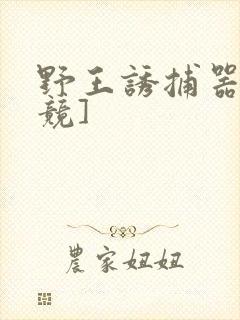 野王誘捕器
競]
農家妞妞